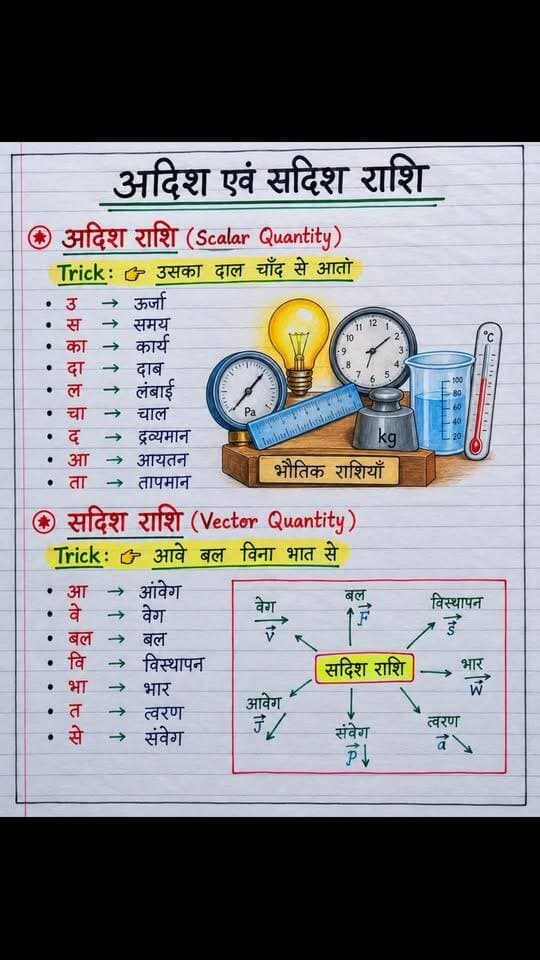 अदिश एवं सदिश राशि
अदिश राशि (Scalar Quantity)
Trick: 👉 उसका दाल चाँद से आता
• उ → ऊर्जा
• स → समय
• का → कार्य
• दा → दाब
• ल → लंबाई
• चा → चाल
• द → द्रव्यमान
• आ → आयतन
• ता → तापमान
12
1
2
3
4
5
6
7
8
9
10
11
Pa
kg
100
80
60
40
20
°C
भौतिक राशियाँ
सदिश राशि (Vector Quantity)
Trick: 👉 आवे बल विना भात से
• आ → आंवेग
• वे → वेग
• बल → बल
• वि → विस्थापन
• भा → भार
• त → त्वरण
• से → संवेग
वेग
v⃗
बल
F⃗
विस्थापन
s⃗
सदिश राशि
भार
W⃗
आवेग
J⃗
संवेग
p⃗
त्वरण
a⃗